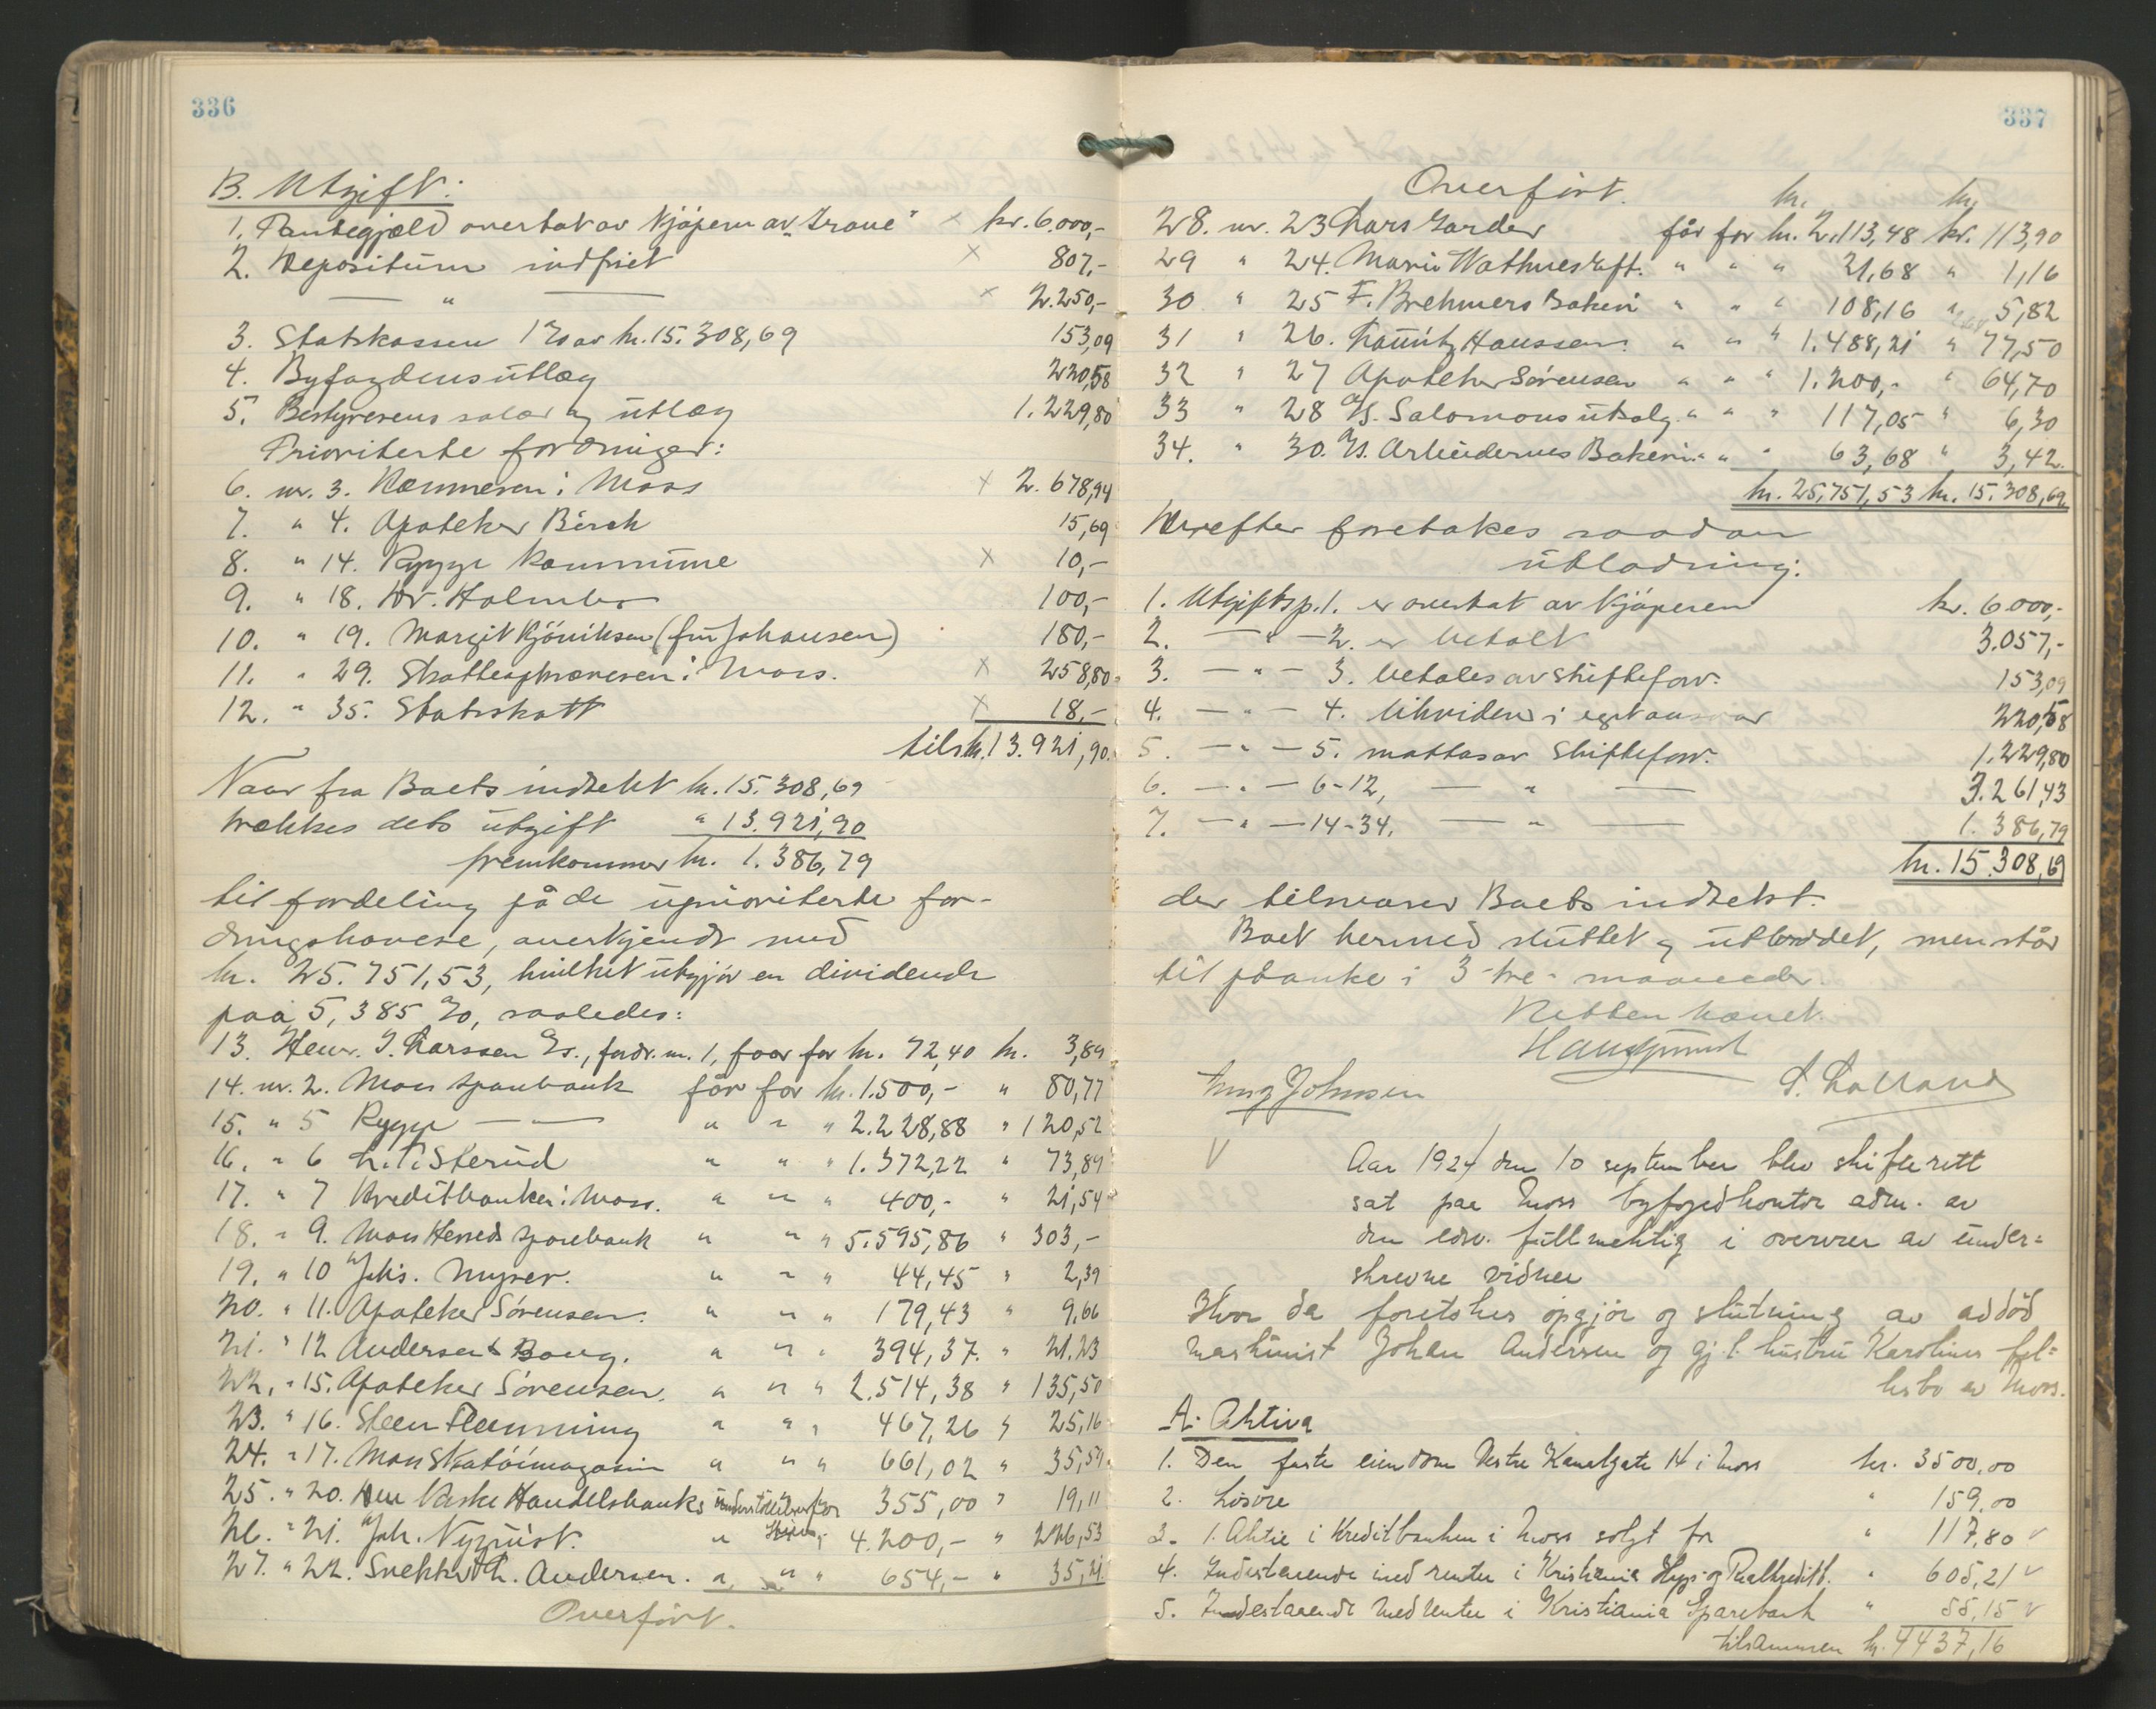 336
B. Utgift:
1. Pantegjæld overtat av kjøperen av "Trane" × kr. 6.000,-
2. Depositum indfriet × 807,-
— " — × 2.250,-
3. Statskassen 1% av kr. 15.308,69 153,09
4. Byfogdens utlæg 220,58
5. Bestyrerens salær og utlæg 1.229,80
Prioriterte fordringer:
6. nr. 3. Kæmneren i Moss × 2.678,94
7. " 4. Apoteker Birch 15,69
8. " 14. Rygge kommune × 10,-
9. " 18. Dr. Holmbo 100,-
10. " 19. Margit Kjöniksen (fru Johansen) 180,-
11. " 29. Skatteopkræveren i Moss. × 258,80
12. " 35. Statsskatt × 18,-
tils. kr. 13.921,90.
Naar fra Boets indtekt kr. 15.308,69
trækkes dets utgift " 13.921,90
fremkommer kr. 1.386,79
til fordeling på de uprioriterte for-
dringshavere, anerkjendt med
kr. 25.751,53, hvilket utgjör en dividende
paa 5,385 %, saaledes:
13. Henr. J. Larssen A/s., fordr. nr. 1, faar for kr. 72,40 kr. 3,89
14. nr. 2. Moss sparebank får for kr. 1.500,- " 80,77
15. " 5 Rygge — " — " " " 2.228,88 " 120,52
16. " 6 Sterud " " " 1.372,22 " 73,89
17. " 7 Kreditbanken i Moss. " " " 400,- " 21,54
18. " 9. Moss Herreds sparebank " " " 5.595,86 " 303,-
19. " 10 Johs. Myrer. " " " 44,45 " 2,39
20. " 11. Apoteker Sörensen. " " " 179,43 " 9,66
21. " 12 Andersen & Boug. " " " 394,37. " 21.23
22. " 15. Apoteker Sörensen. " " " 2.514,38 " 135,50
23. " 16. Steen Flemming " " " 467,26 " 25,16
24. " 17. Moss Skotöimagasin " " " 661,02 " 35,59.
25. " 20. Den Norske Handelsbanks 355,00 " 19,11
26. " 21. Joh. Nyquist. " " 4.200,- " 226,53
27. " 22. Snekker Andersen. " " " 654,- " 35,21
Overfört.
337
Overfört. kr. kr.
28. nr. 23 Lars Garder får for kr. 2.113,48 kr. 113,90
29 " 24. Marie Wathnes Eft. " " " 21,68 " 1,16
30 " 25 F. Brehmers Bakeri " " " 108,16 " 5,82
31 " 26. Laurits Hanssen. " " " 1.488,21 " 77,50
32 " 27 Apoteker Sörensen " " " 1.200,- " 64,70
33 " 28 A/S. Salomons utsalg. " " " 117,05 " 6,30
34. " 30. A/S. Arbeidernes Bakeri. " " " 63,68 " 3,42.
kr. 25,751,53 kr. 15.308,69
Derefter foretakes saadan
utlodning:
1. Utgiftsp. 1. er overtat av kjöperen kr. 6000,-
2. — " — 2. er betalt 3.057,-
3. — " — 3. betales av skifteforv. 153,09
4. — " — 4. likvideres i eget ansvar 220,58
5. — " — 5. mottas av Skifteforv. 1.229,80
6. — " — 6-12, — " — 3.261,43
7. — " — 14-34, — " — 1.386,79
kr. 15.308,69
der tilsvarer Boets indtekt.
Boet hermed sluttet og utloddet, men står
til påanke i 3-tre- maaneder.
Retten hævet.
Johnsen
Aar 1924 den 10 september blev skifterett
sat paa Moss byfogedkontor adm. av
den edsv. fullmektig i overvær av under=
skrevne vidner
Hvor da foretokes opgjör og slutning av avdöd
maskinist Johan Andersen og gj.l. hustru Karolines fel=
lesbo av Moss.
A. Aktiva
1. Den faste eiendom Vestre Kanalgate 14 i Moss kr. 3500,00
2. Lösöre " 159.00
3. 1. Aktie i Kreditbanken i Moss solgt for " 117,80 v
4. Indestaaende med renter i Kristiania Hyp- og Realkreditb. " 605,21 v
5. Indestaaende med renter i Kristiania Sparebank " 55,15 v
tilsammen kr. 4437,16